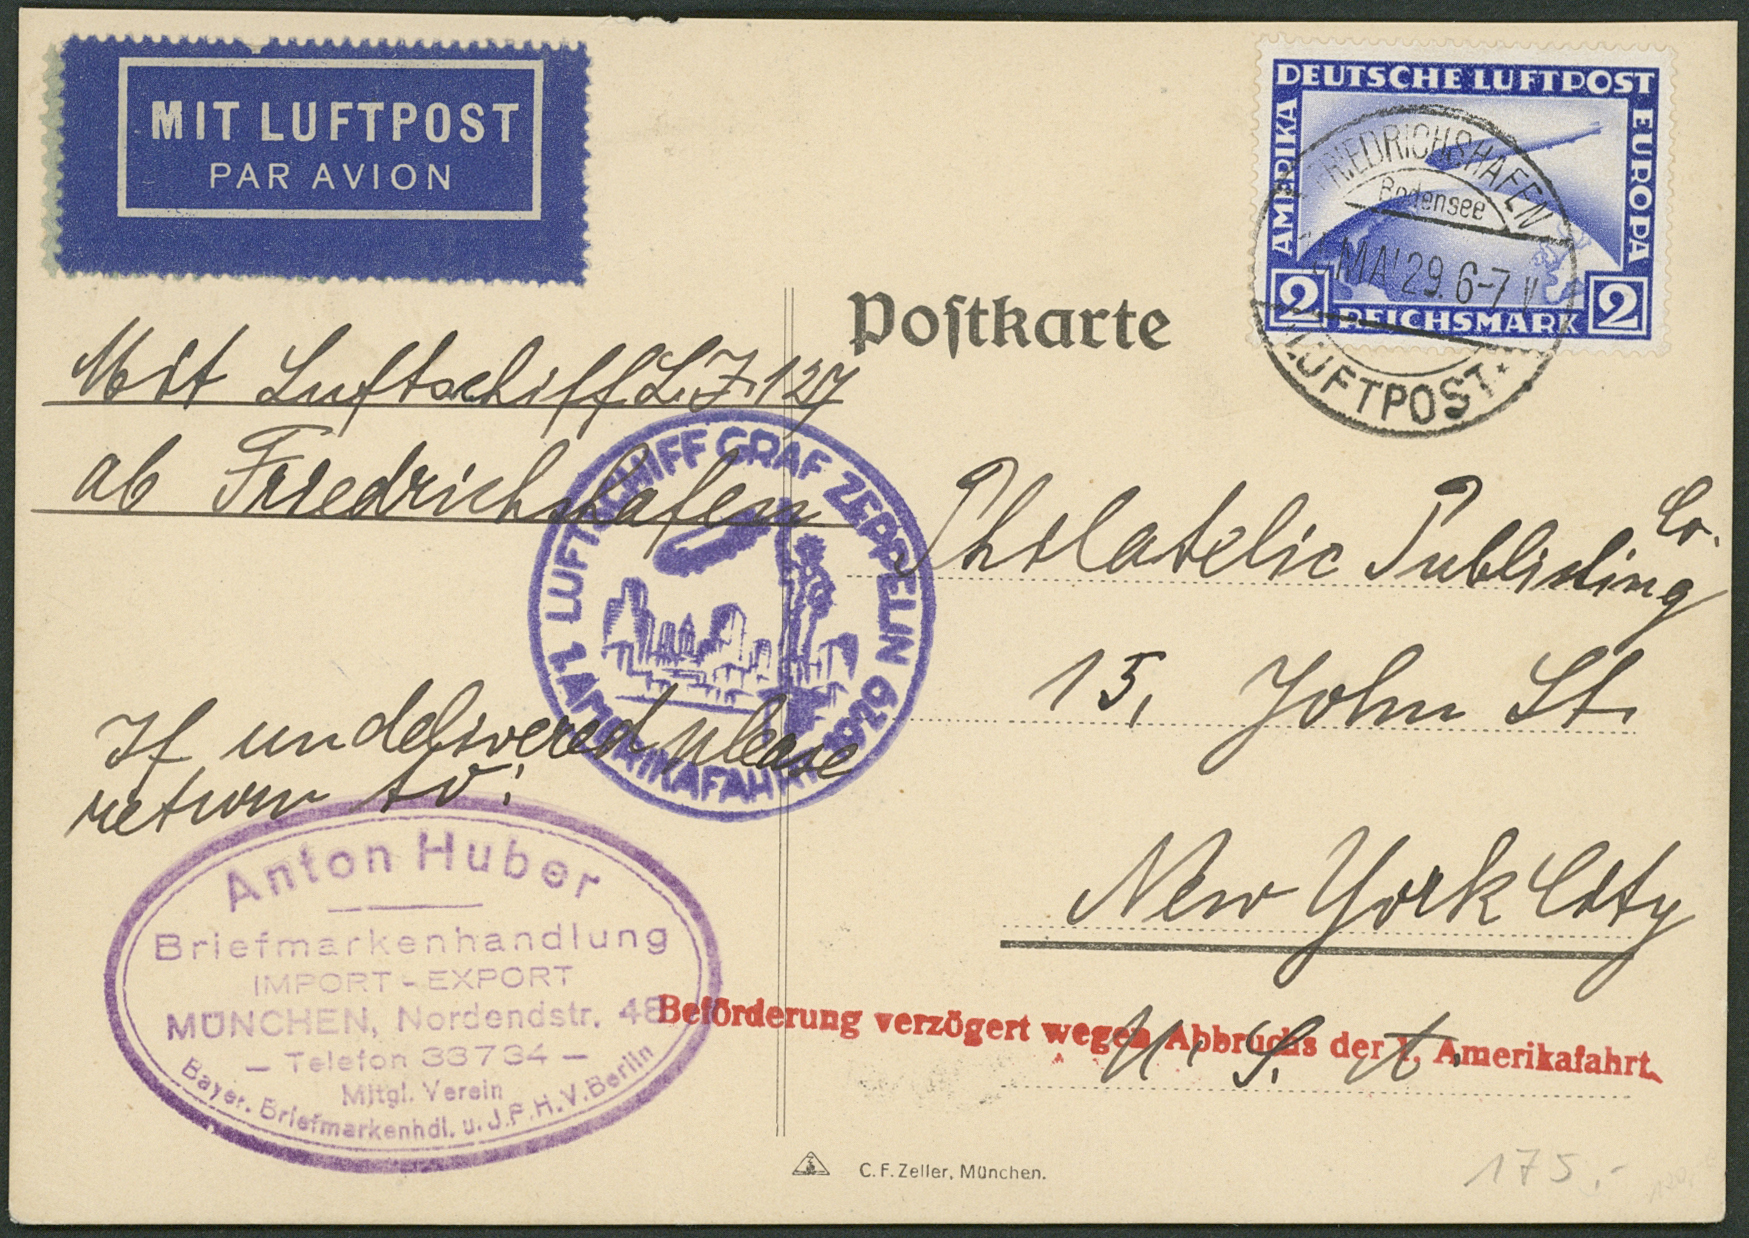 MIT LUFTPOST
PAR AVION
DEUTSCHE LUFTPOST
AMERIKA
EUROPA
2 REICHSMARK 2
FRIEDRICHSHAFEN
Bodensee
MAI 29. 6-7 V
LUFTPOST
Postkarte
Mit Luftschiff L.Z. 127
ab Friedrichshafen
LUFTSCHIFF GRAF ZEPPELIN
1. AMERIKAFAHRT 1929
Philatelic Publishing Co.
15, John St.
New York City
U. S. A.
If undelivered please
return to:
Anton Huber
Briefmarkenhandlung
IMPORT - EXPORT
MÜNCHEN, Nordendstr. 48
— Telefon 33734 —
Mitgl. Verein
Bayer. Briefmarkenhdl. u. J.P.H.V. Berlin
Beförderung verzögert wegen Abbruchs der 1. Amerikafahrt.
C. F. Zeller, München.
175,-